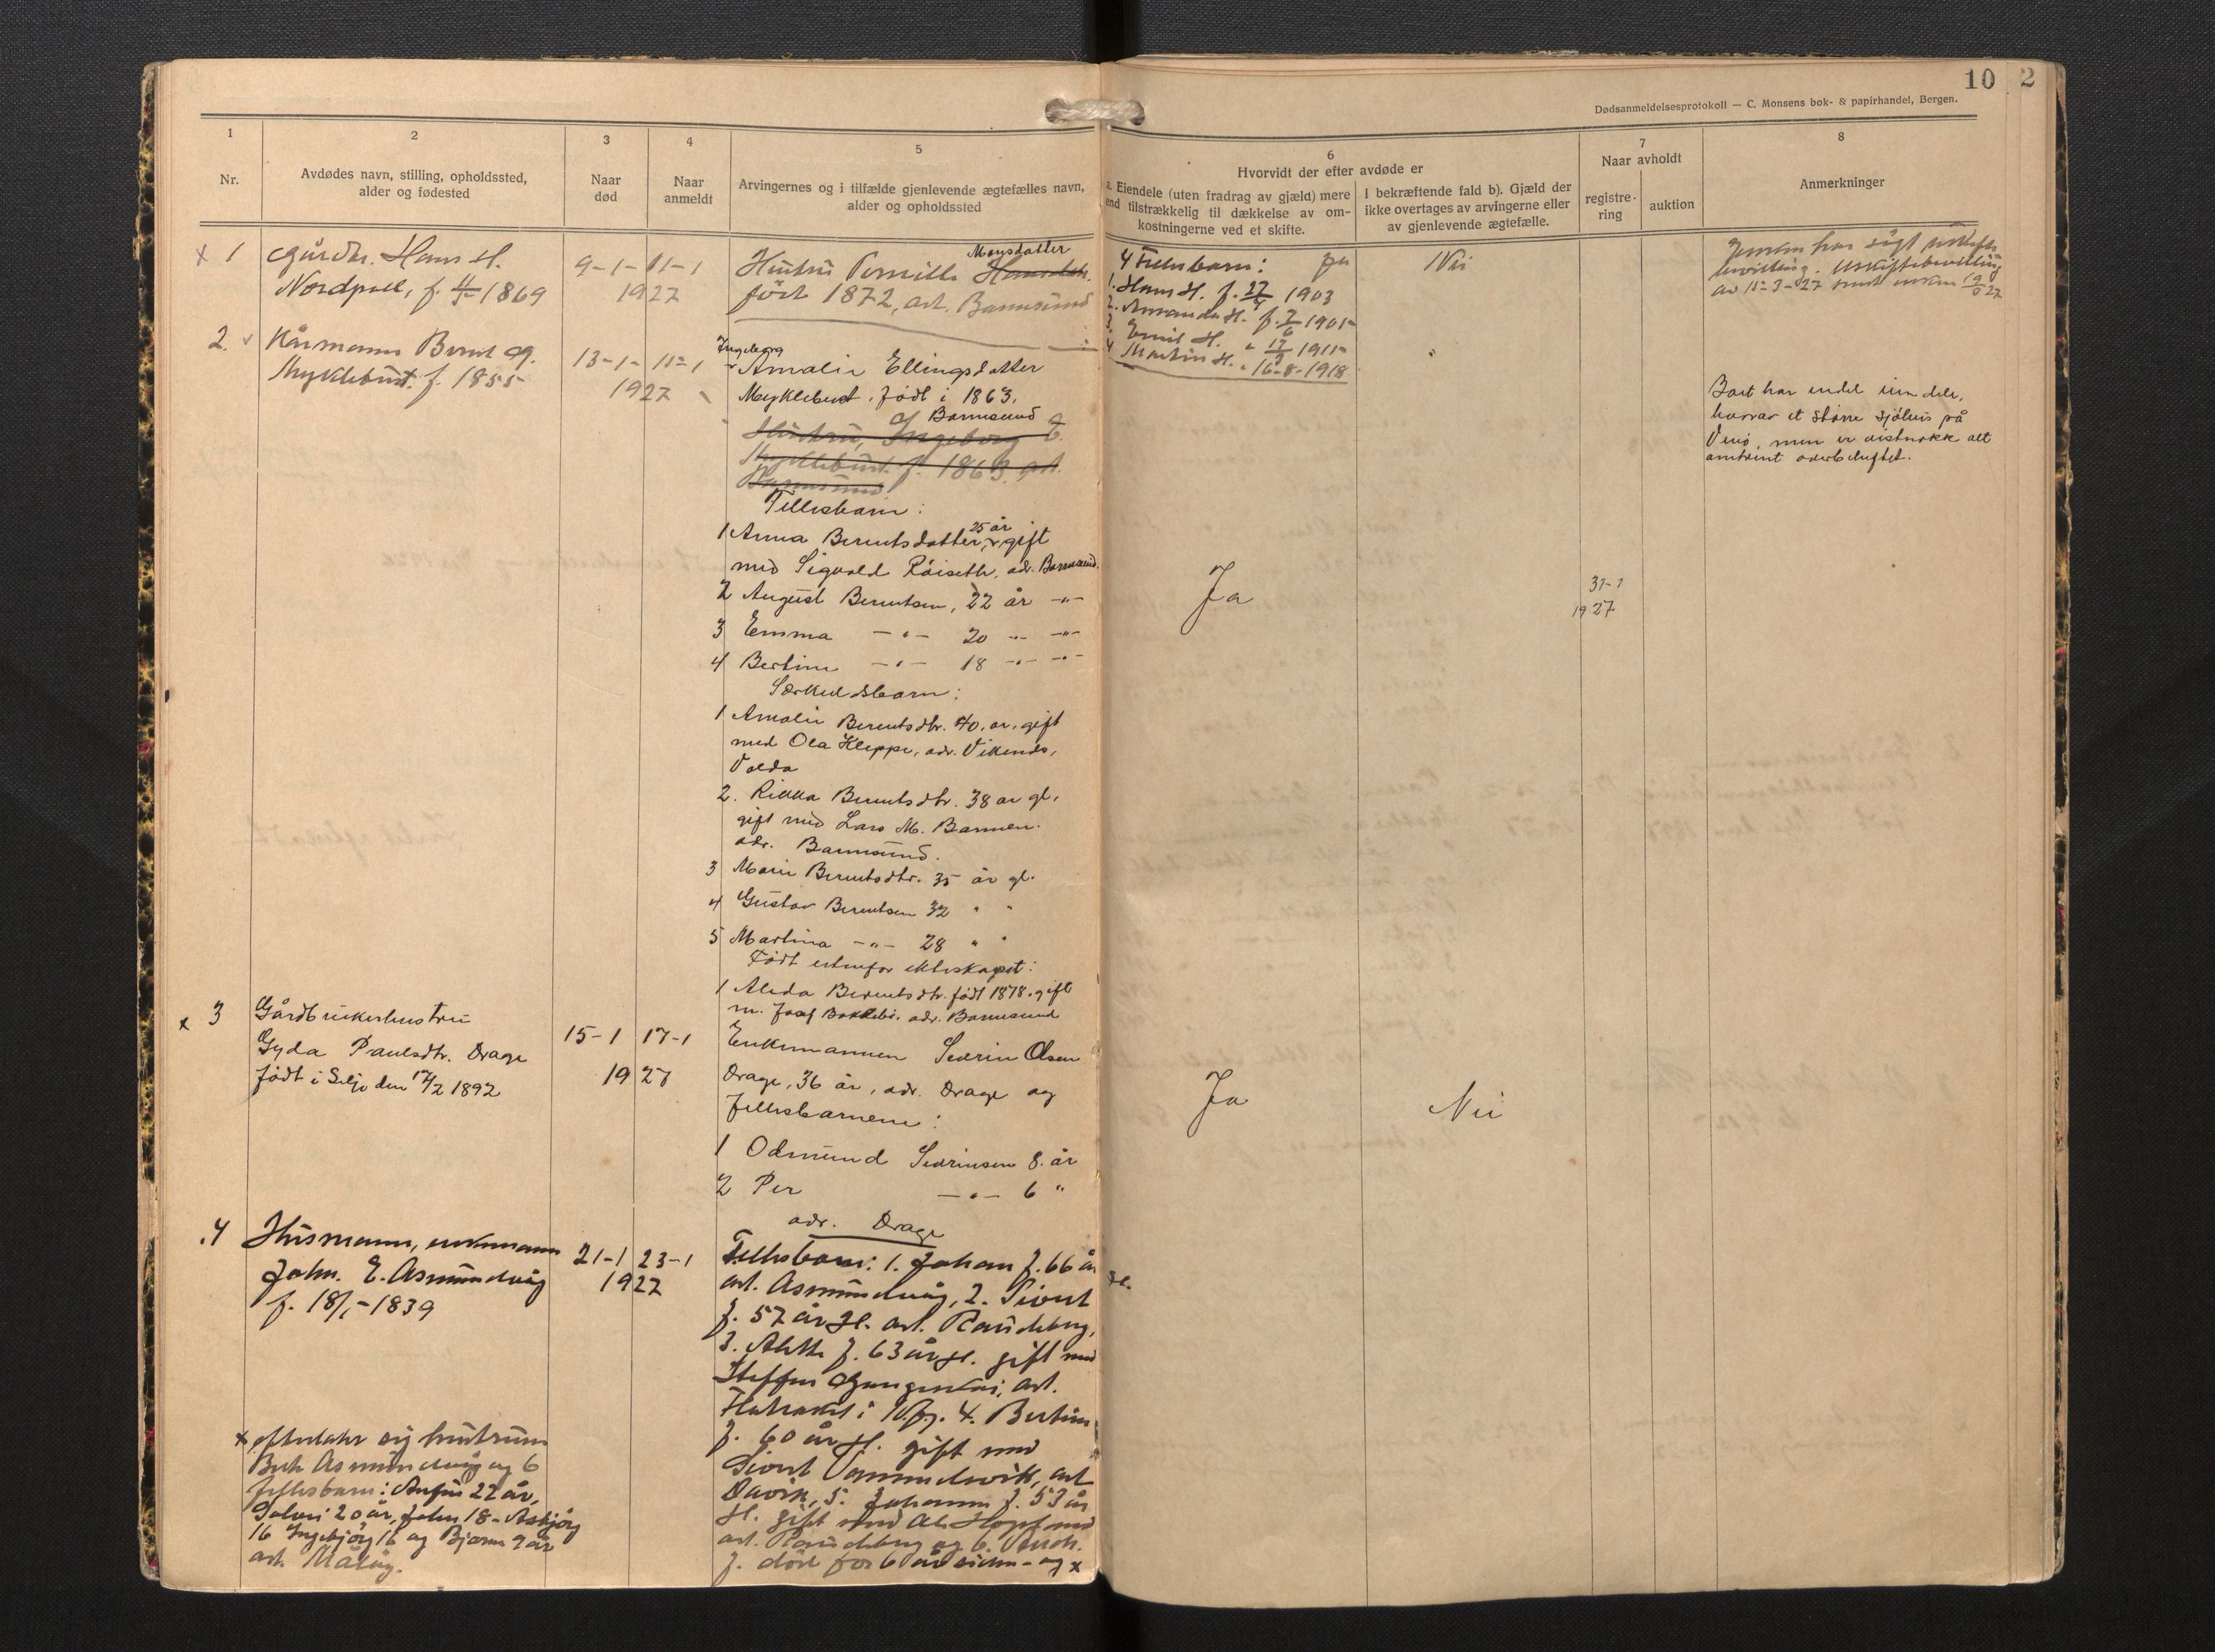 10 2
Dødsanmeldelsesprotokoll — C. Monsens bok- & papirhandel, Bergen.
1
Nr.
2
Avdødes navn, stilling, opholdssted,
alder og fødested
3
Naar
død
4
Naar
anmeldt
5
Arvingernes og i tilfælde gjenlevende ægtefælles navn,
alder og opholdssted
6
Hvorvidt der efter avdøde er
a. Eiendele (uten fradrag av gjæld) mere
end tilstrækkelig til dækkelse av om-
kostningerne ved et skifte.
I bekræftende fald b). Gjæld der
ikke overtages av arvingerne eller
av gjenlevende ægtefælle.
7
Naar avholdt
registre-
ring
auktion
8
Anmerkninger
x 1
Gårdbr. Hans H.
Nordpoll, f. 4/5 1869
9-1- 11-1
1927
Monsdatter
Hustru Pernille
født 1872, adr. Barmsund
4 Fellesbarn: Ja
1. Hans H. f. 27/ 1903
2. Amanda H. f. 7/6 1905
3. Emil H. " 17/ 1911
4 Martin H. " 16-8-1918
Nei
har søgt uskifte
bevilling. Uskiftebevilling
av 15-3-27
2. v
Kårmann Bernt
Myklebust f. 1855
13-1- 15-1
1927
Ingeborg
Amalie Ellingsdatter
Myklebust, født i 1863.
Barmsund
Hustru, Ingeborg E.
Myklebust f. 1863 adr.
Barmsund
Fellesbarn:
25 år
1 Anna Berentsdatter, gift
med Sigvald Røiseth, adr. Barmsund.
2 August Berentsen, 22 år -"-
3 Emma -"- 20 -"- -"-
4 Bertine -"- 18 -"- -"-
Særkuldsbarn:
1 Amalie Berentsdtr. 40. år, gift
med Ola Kleppe, adr. Vikends,
Volda
2. Rikka Berentsdtr. 38 år gl.
gift med Lars M. Barmen.
adr. Barmsund.
3 Marie Berentsdtr. 35 år gl.
4 Gustav Berentsen 32 " "
5 Martina -"- 28 " "
Født utenfor ekteskapet:
1 Alida Berentsdtr. født 1878. gift
m. Josef adr. Barmsund
Ja
31-1
1927
Boet har endel eiendele,
herav et større sjøhus på
men er vistnokk alt
omtrent overbeheftet.
x 3
Gårdbrukerhustru
Gyda Paulsdtr. Drage
født i Selje den 17/2 1892
15-1 17-1
1927
Enkemannen Severin Olsen
Drage, 36 år, adr. Drage og
fellesbarnene:
1 Odmund Severinsen 8. år
2 Per -"- 6 "
adr. Drage
Ja
Nei
.4
Husmann, enkemann
John. E. Asmundvåg
f. 18/1-1839
21-1 23-1
1927
Fellesbarn: 1. Johan J. 66 år gl.
adr. Asmundvåg, 2. Sivert
J. 57 år gl. adr. Raudeberg,
3. Alette J. 63 år gl. gift med
Steffen adr.
4. Bertine
J. 60 år gl. gift med
Sivert adr.
Davik, 5. Johanne J. 53 år
gl. gift med
adr. Raudeberg og 6.
J. død for 6 år siden - og x
x efterlater sig hustruen
Asmundvåg og 6
fellesbarn: 22 år,
20 år, John 18 - Asbjørg
16 Ingebjørg 16 og Bjarne 9 år
adr. Måløy.